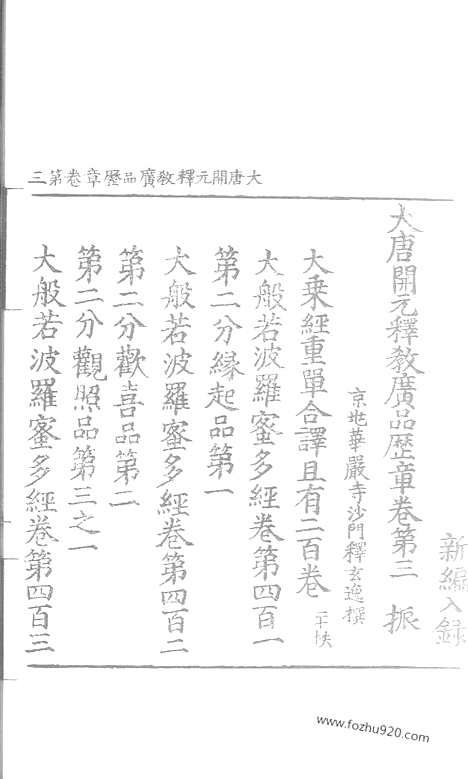 大唐開元釋教廣品歷章卷第三
新編入録
大唐開元釋教廣品歷章卷第三　振
京地華嚴寺沙門釋玄逸撰
大乗經重單合譯且有二百卷 二十帙
大般若波羅蜜多經卷第四百一
第二分縁起品第一
大般若波羅蜜多經卷第四百二
第二分歡喜品第二
第二分觀照品第三之一
大般若波羅蜜多經卷第四百三
www.fozhu920.com